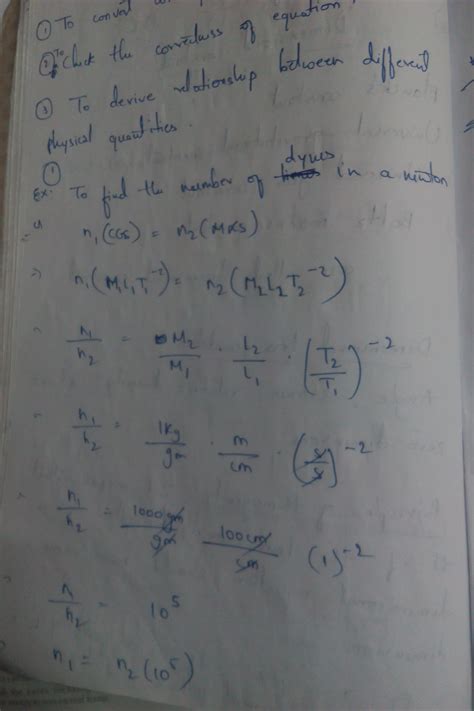 ① To convert
② To Check the correctness of equation,
③ To derive relationship between different
physical quantities.
①
Ex: To find the number of dynes in a newton
n₁(CGS) = n₂(MKS)
⇒ n₁(M₁L₁T₁⁻²) = n₂(M₂L₂T₂⁻²)
n₁/n₂ = M₂/M₁ · L₂/L₁ · (T₂/T₁)⁻²
n₁/n₂ = 1kg/gm · m/cm · (s/s)⁻²
n₁/n₂ = 1000gm/gm · 100cm/cm (1)⁻²
n/n₂ = 10⁵
n₁ = n₂(10⁵)